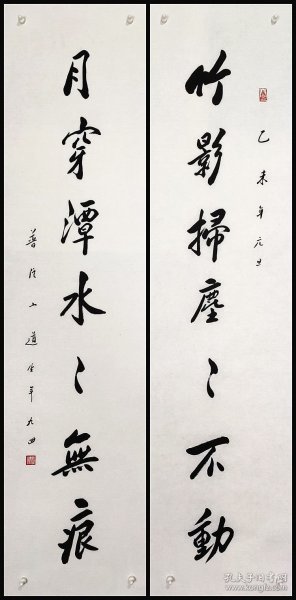 竹影掃塵〻不動
乙未年元旦
月穿潭水〻無痕
普陀山道生年九四
孔夫子旧书网